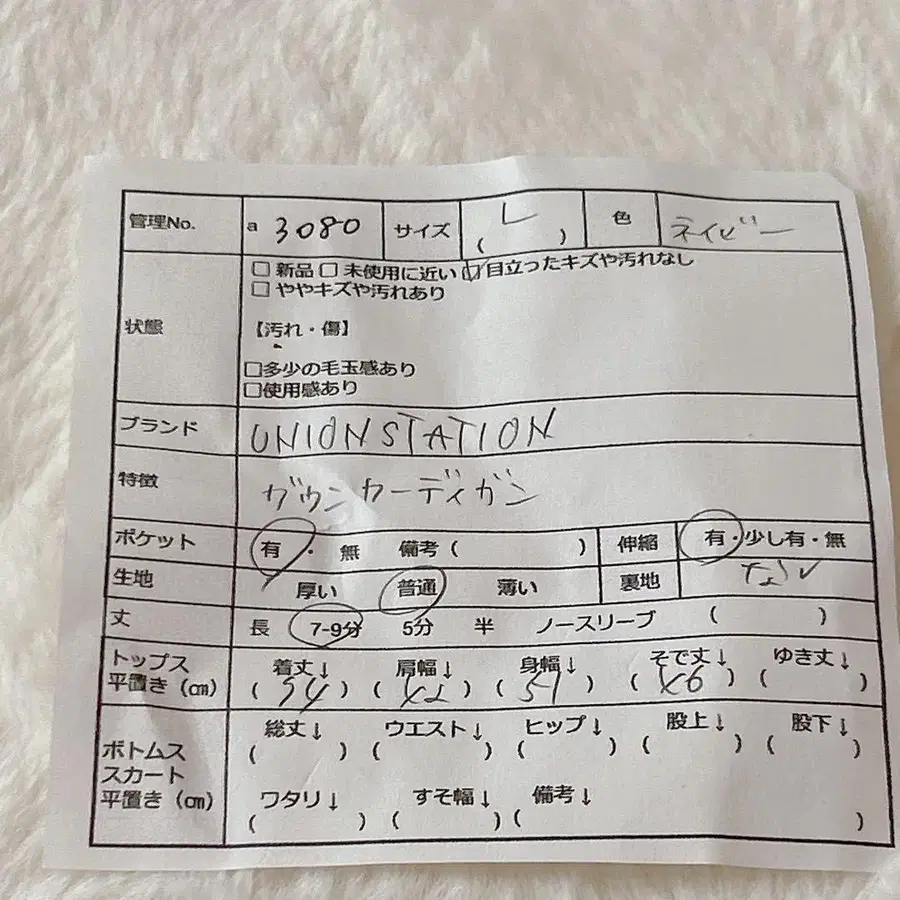 管理No. a 3080 サイズ L ( ) 色 ネイビー
状態 □ 新品 □ 未使用に近い ☑ 目立ったキズや汚れなし
□ ややキズや汚れあり
【汚れ・傷】
□多少の毛玉感あり
□使用感あり
ブランド UNION STATION
特徴 ガウンカーディガン
ポケット 有・無 備考 ( ) 伸縮 有・少し有・無
生地 厚い 普通 薄い 裏地 なし
丈 長 7-9分 5分 半 ノースリーブ ( )
トップス 着丈↓ 肩幅↓ 身幅↓ そで丈↓ ゆき丈↓
平置き (㎝) (54) (42) (51) (46) ( )
ボトムス 総丈↓ ウエスト↓ ヒップ↓ 股上↓ 股下↓
( ) ( ) ( ) ( ) ( )
スカート
平置き (㎝) ワタリ↓ すそ幅↓ 備考↓
( ) ( ) ( )